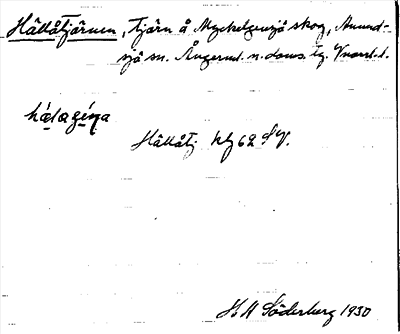 Hällåtjärnen, Tjärn å Myckelgensjö skog, Anund-
sjö sn. Ångerml. n. doms. tg. Vnorrl. l.
hálagę́ṇa
Hällåtj. kbl 62 SV.
H H Söderberg 1930